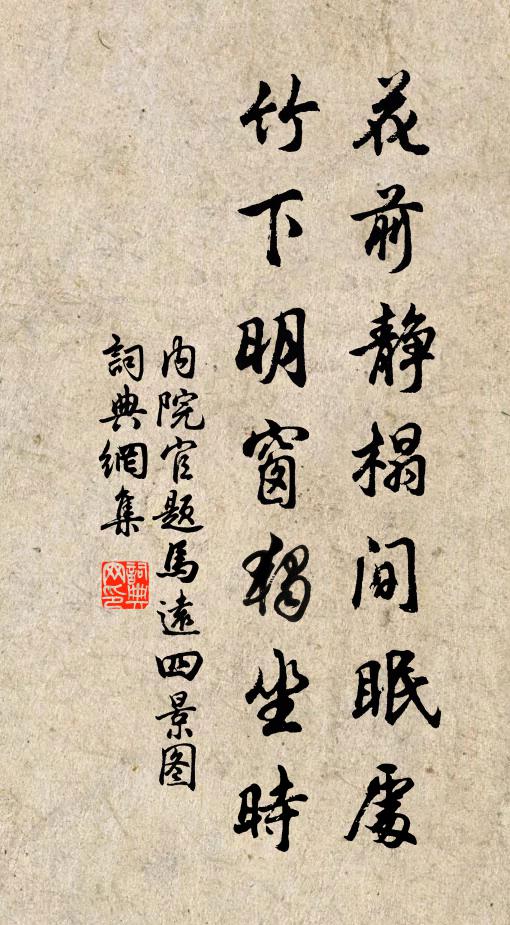 花前静榻间眠處
竹下明窗獨坐時
内院官题馬遠四景图
詞典網集
詞典网印